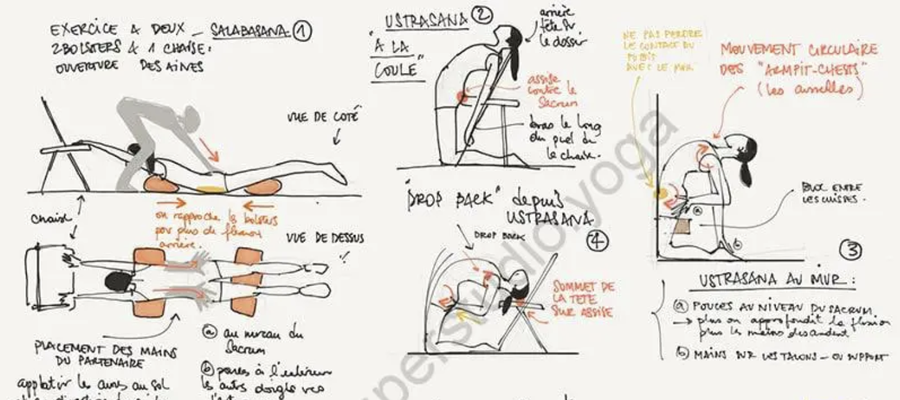 EXERCICE A DEUX _ SALABASANA ①
2 BOLSTERS & 1 CHAISE.
OUVERTURE DES AINES
VUE DE COTÉ
chaise
on rapproche les bolsters
pour plus de flexion
arrière.
VUE DE DESSUS
PLACEMENT DES MAINS
DU PARTENAIRE
applatir les aines au sol
ⓐ au niveau du
Sacrum
ⓑ pouces à l'extérieur
les autres doigts vers
USTRASANA ②
"A LA
COULE"
arrière
tête sur
le dossier
assise
contre le
Sacrum
bras le long
du pied de
la chaise.
"DROP BACK" depuis
USTRASANA
④
DROP BACK
SOMMET DE
LA TETE
SUR ASSISE
NE PAS PERDRE
LE CONTACT DU
PUBIS
AVEC LE MUR
MOUVEMENT CIRCULAIRE
DES "ARMPIT-CHESTS"
(les aisselles)
BLOC ENTRE
LES CUISSES.
ⓐ
ⓑ
③
USTRASANA AU MUR :
ⓐ POUCES AU NIVEAU DU SACRUM.
→ plus on approfondit la flexion
plus les mains descendent
ⓑ MAINS SUR LES TALONS - OU SUPPORT
perstudio.yoga